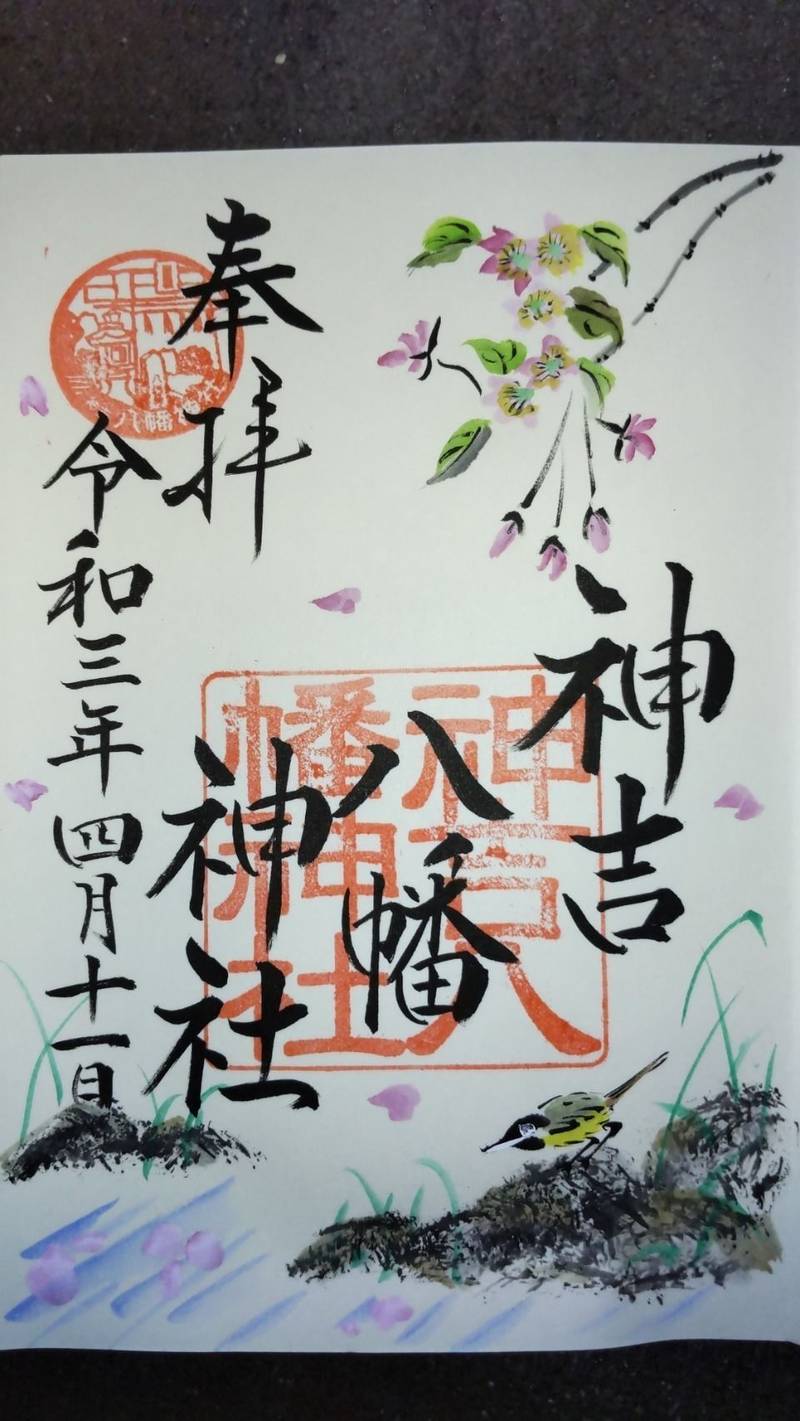 神吉
八幡
神社
奉拝
令和三年四月十一日
神吉八
幡神社
八幡神